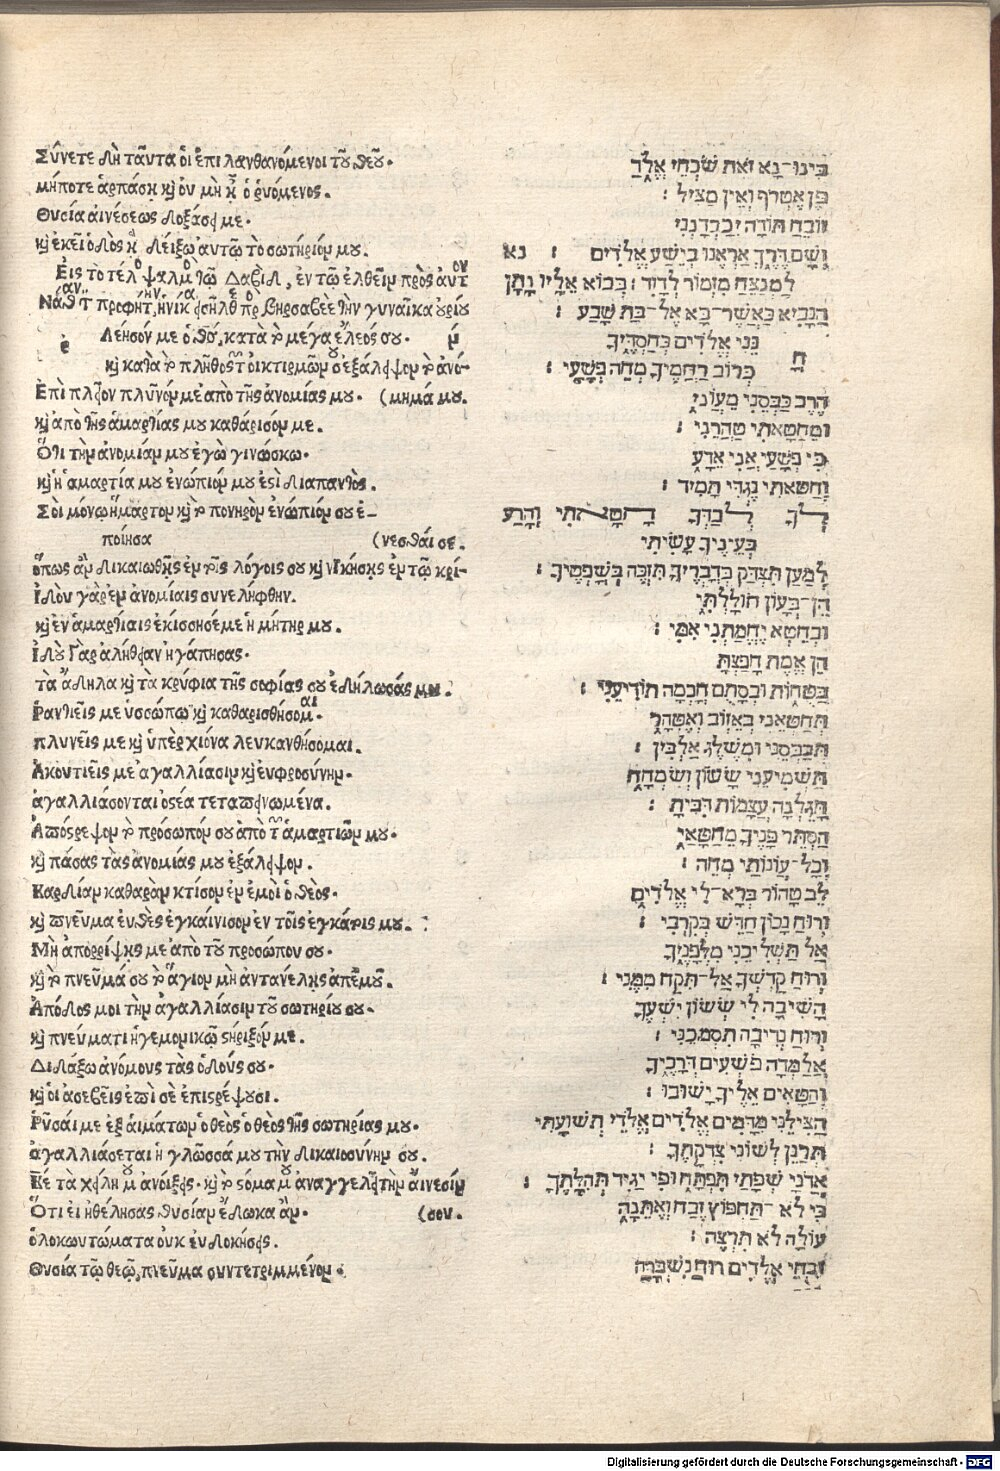 Σύνετε δὴ ταῦτα ὁι ἐπιλανθανόμενοι τοῦ θεοῦ.
μήποτε ἁρπάσῃ καὶ ὀυ μὴ ᾖ ὁ ῥυόμενος.
Θυσία ἀινέσεως δοξάσει με.
καὶ ἐκεῖ ὁδὸς ᾗ δείξω ἀυτῷ τὸ σωτήριόν μου.
Εἰς τὸ τέλος ψαλμὸς τῷ Δαβὶδ, ἐν τῷ ἐλθεῖν πρὸς ἀυτὸν
Νάθαν τὸν προφήτην, ἡνίκα ἐισῆλθε πρὸς Βηρσαβεὲ τὴν γυναῖκα ὀυρίου
ἐ λέησόν με ὁ θεὸς, κατὰ τὸ μέγα ἔλεός σου. ν
καὶ κατὰ τὸ πλῆθος τῶν ὀικτιρμῶν σου ἐξάλειψον τὸ ἀνό-
Ἐπὶ πλεῖον πλῦνόν με ἀπὸ τῆς ἀνομίας μου. (μημά μου.
καὶ ἀπὸ τῆς ἁμαρτίας μου καθάρισόν με.
Ὅτι τὴν ἀνομίαν μου ἐγὼ γινώσκω.
καὶ ἡ ἁμαρτία μου ἐνώπιόν μου ἐστὶ διαπαντός.
Σοὶ μόνῳ ἥμαρτον καὶ τὸ πονηρὸν ἐνώπιόν σου ἐ-
ποίησα (νεσθαί σε.
ὅπως ἂν δικαιωθῇς ἐν τοῖς λόγοις σου καὶ νικήσῃς ἐν τῷ κρί-
Ἰδοὺ γὰρ ἐν ἀνομίαις συνελήφθην.
καὶ ἐν ἁμαρτίαις ἐκίσσησέ με ἡ μήτηρ μου.
Ἰδοὺ γὰρ ἀλήθειαν ἠγάπησας.
τὰ ἄδηλα καὶ τὰ κρύφια τῆς σοφίας σου ἐδήλωσάς μοι.
Ῥαντιεῖς με ὑσσώπῳ καὶ καθαρισθήσομαι.
πλυνεῖς με καὶ ὑπὲρ χιόνα λευκανθήσομαι.
Ἀκουτιεῖς με ἀγαλλίασιν καὶ ἐυφροσύνην.
ἀγαλλιάσονται ὀστέα τεταπεινωμένα.
Ἀπόστρεψον τὸ πρόσωπόν σου ἀπὸ τῶν ἁμαρτιῶν μου.
καὶ πάσας τὰς ἀνομίας μου ἐξάλειψον.
Καρδίαν καθαρὰν κτίσον ἐν ἐμοὶ ὁ θεός.
καὶ πνεῦμα ἐυθὲς ἐγκαίνισον ἐν τοῖς ἐγκάτοις μου.
Μὴ ἀπορρίψῃς με ἀπὸ τοῦ προσώπου σου.
καὶ τὸ πνεῦμά σου τὸ ἅγιον μὴ ἀντανέλῃς ἀπ' ἐμοῦ.
Ἀπόδος μοι τὴν ἀγαλλίασιν τοῦ σωτηρίου σου.
καὶ πνεύματι ἡγεμονικῷ στήριξόν με.
Διδάξω ἀνόμους τὰς ὁδούς σου.
καὶ ὁι ἀσεβεῖς ἐπὶ σὲ ἐπιστρέψουσι.
Ῥῦσαί με ἐξ ἁιμάτων ὁ θεὸς ὁ θεὸς τῆς σωτηρίας μου.
ἀγαλλιάσεται ἡ γλῶσσά μου τὴν δικαιοσύνην σου.
Κύριε τὰ χείλη μου ἀνοίξεις. καὶ τὸ στόμα μου ἀναγγελεῖ τὴν ἄινεσίν
Ὅτι ἐι ἠθέλησας θυσίαν ἔδωκα ἄν. (σου.
ὁλοκαυτώματα ὀυκ ἐυδοκήσεις.
Θυσία τῷ θεῷ, πνεῦμα συντετριμμένον.
בִּינוּ־נָא זֹאת שֹׁכְחֵי אֱלוֹהַּ
פֶּן אֶטְרֹף וְאֵין מַצִּיל :
זוֹבֵחַ תּוֹדָה יְכַבְּדָנְנִי
וְשָׂם דֶּרֶךְ אַרְאֶנּוּ בְּיֵשַׁע אֱלֹדִים : נא
לַמְנַצֵּחַ מִזְמוֹר לְדָוִד : בְּבוֹא אֵלָיו נָתָן
הַנָּבִיא כַּאֲשֶׁר־בָּא אֶל־בַּת שָׁבַע :
חָ נֵּנִי אֱלֹדִים כְּחַסְדֶּיךָ
כְּרוֹב רַחֲמֶיךָ מְחֵה פְשָׁעָי :
הֶרֶב כַּבְּסֵנִי מֵעֲוֹנִי
וּמֵחַטָּאתִי טַהֲרֵנִי :
כִּי פְשָׁעַי אֲנִי אֵדָע
וְחַטָּאתִי נֶגְדִּי תָמִיד :
לְךָ לְבַדְּךָ חָטָאתִי וְהָרַע
בְּעֵינֶיךָ עָשִׂיתִי
לְמַעַן תִּצְדַּק בְּדָבְרֶיךָ תִּזְכֶּה בְשָׁפְטֶיךָ :
הֵן־בְּעָוֹן חוֹלָלְתִּי
וּבְחֵטְא יֶחֱמַתְנִי אִמִּי :
הֵן אֱמֶת חָפַצְתָּ
בַטֻּחוֹת וּבְסָתֻם חָכְמָה תוֹדִיעֵנִי :
תְּחַטְּאֵנִי בְאֵזוֹב וְאֶטְהָר
תְּכַבְּסֵנִי וּמִשֶּׁלֶג אַלְבִּין :
תַּשְׁמִיעֵנִי שָׂשׂוֹן וְשִׂמְחָה
תָּגֵלְנָה עֲצָמוֹת דִּכִּיתָ :
הַסְתֵּר פָּנֶיךָ מֵחֲטָאָי
וְכָל־עֲוֹנוֹתַי מְחֵה :
לֵב טָהוֹר בְּרָא־לִי אֱלֹדִים
וְרוּחַ נָכוֹן חַדֵּשׁ בְּקִרְבִּי :
אַל תַּשְׁלִיכֵנִי מִלְּפָנֶיךָ
וְרוּחַ קָדְשְׁךָ אַל־תִּקַּח מִמֶּנִּי :
הָשִׁיבָה לִי שְׂשׂוֹן יִשְׁעֶךָ
וְרוּחַ נְדִיבָה תִסְמְכֵנִי :
אֲלַמְּדָה פֹשְׁעִים דְּרָכֶיךָ
וְחַטָּאִים אֵלֶיךָ יָשׁוּבוּ :
הַצִּילֵנִי מִדָּמִים אֱלֹדִים אֱלֹדֵי תְּשׁוּעָתִי
תְּרַנֵּן לְשׁוֹנִי צִדְקָתֶךָ :
אֲדֹנָי שְׂפָתַי תִּפְתָּח וּפִי יַגִּיד תְּהִלָּתֶךָ :
כִּי לֹא־תַחְפּוֹץ זֶבַח וְאֶתֵּנָה
עוֹלָה לֹא תִרְצֶה :
זִבְחֵי אֱלֹדִים רוּחַ נִשְׁבָּרָה
Digitalisierung gefördert durch die Deutsche Forschungsgemeinschaft - DFG